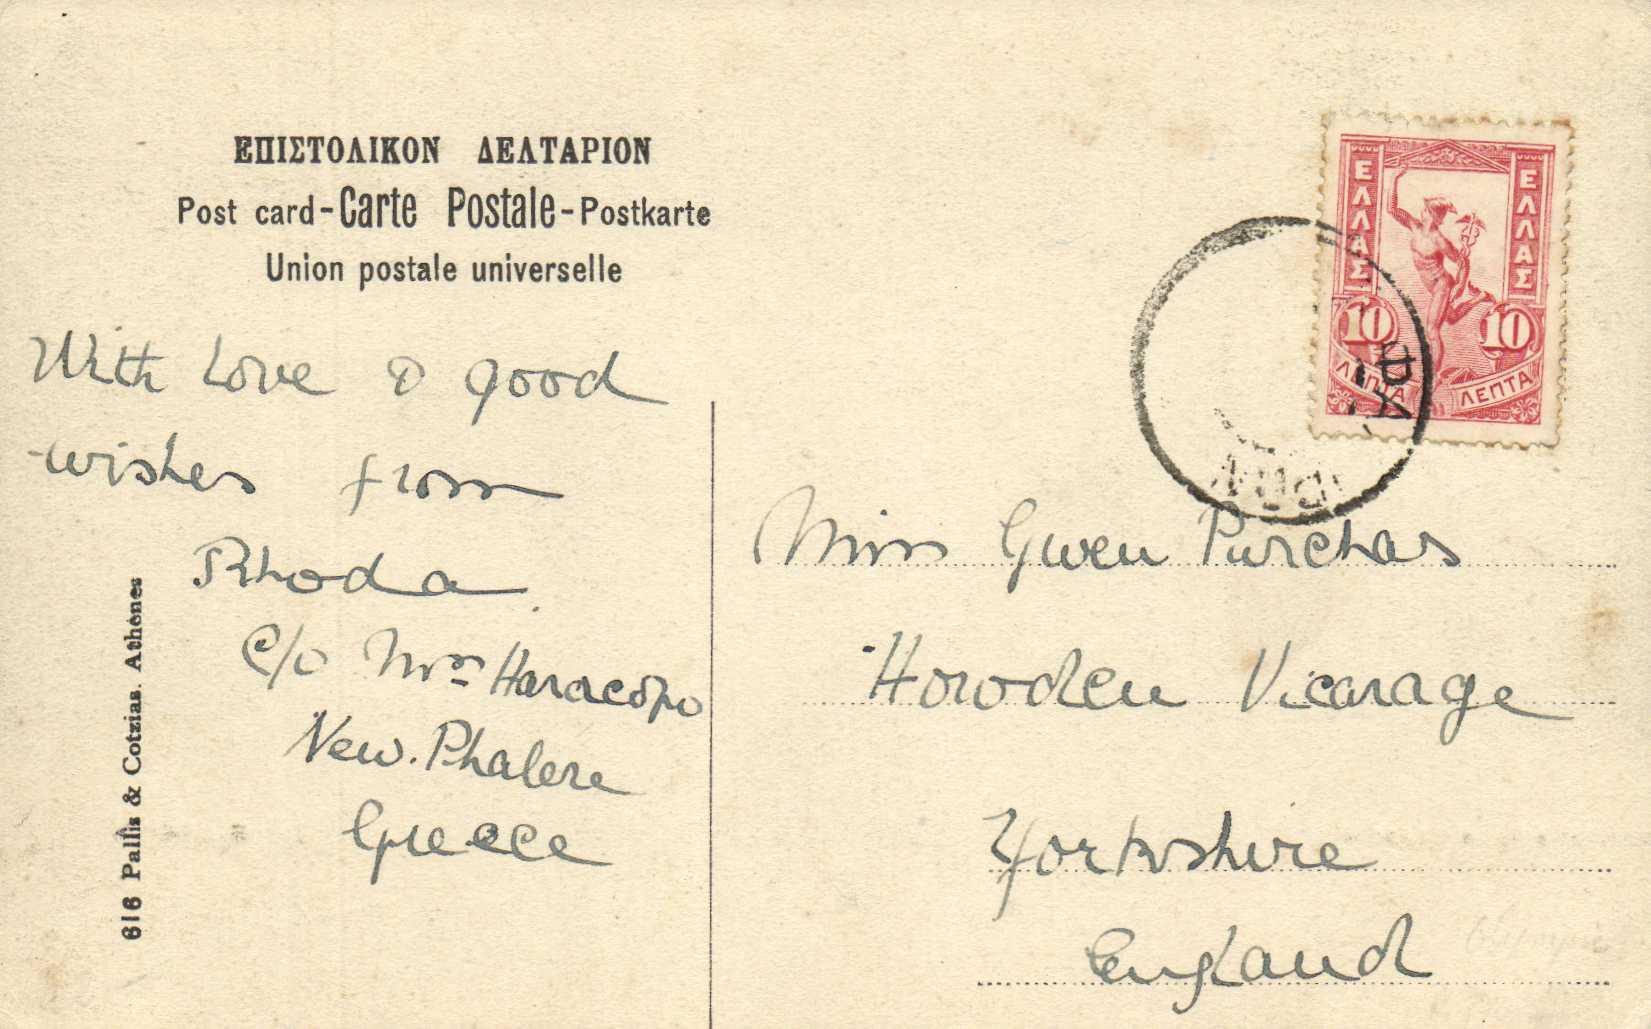 ΕΠΙΣΤΟΛΙΚΟΝ ΔΕΛΤΑΡΙΟΝ
Post card - Carte Postale - Postkarte
Union postale universelle
With love & good
wishes from
Rhoda
C/o Mrs Haracopo
New. Phalere
Greece
616 Pallis & Cotzias. Athènes
ΕΛΛΑΣ
ΕΛΛΑΣ
10
10
ΛΕΠΤΑ
ΛΕΠΤΑ
ΦΑ
Miss Gwen Purchas
Howden Vicarage
Yorkshire
England